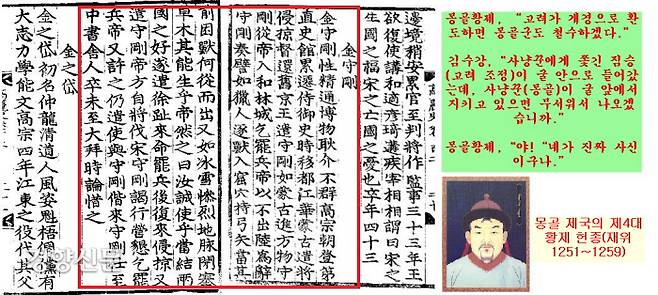 邊境稍安累官至判將作監事三十三年王
欲復使講和適彥琦遘疾宰相相謂曰宋之
生國之福宋之亡國之憂也卒年四十三
金守剛
金守剛性精通博物耿介不群高宗朝登第
直史館累遷侍御史時移都江華蒙古遣將
侵掠督還舊京王遣守剛如蒙古進方物守
剛從帝入和林城乞罷兵帝以不出陸爲辭
守剛奏譬如獵人逐獸入窟穴持弓矢當其
前困獸何從而出又如氷雪慘烈地脉閉塞
草木其能生乎帝然之曰汝誠使乎當結兩
國之好遂遣徐趾來命罷兵後復來侵掠又
遣守剛帝方自將伐宋守剛謁行營懇乞罷
兵帝又許之仍遣使與守剛偕來守剛仕至
中書舍人卒未至大拜時論惜之
金之岱
金之岱初名仲龍淸道人風姿魁梧倜儻有
大志力學能文高宗四年江東之役代其父
경향신문
몽골황제, “고려가 개경으로 환
도하면 몽골군도 철수하겠다.”
김수강, “사냥꾼에게 쫓긴 짐승
(고려 조정)이 굴 안으로 들어갔
는데, 사냥꾼(몽골)이 굴 앞에서
지키고 있으면 무서워서 나오겠
습니까.”
몽골황제, “야! “네가 진짜 사신
이구나.”
몽골 제국의 제4대
황제 헌종(재위
1251~1259)